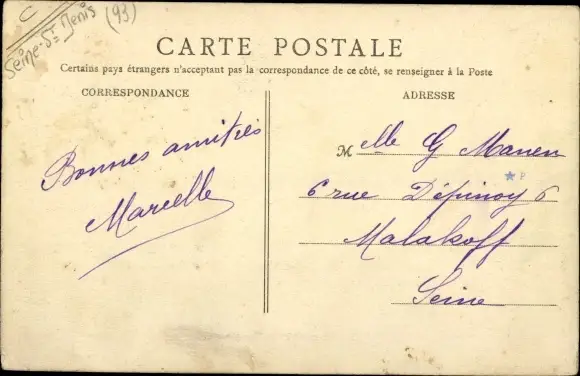 C
Seine-St Denis (93)
CARTE POSTALE
Certains pays étrangers n'acceptant pas la correspondance de ce côté, se renseigner à la Poste
CORRESPONDANCE
Bonnes amitiés
Marcelle
ADRESSE
Melle G Manen
P
6 rue Dépinoy 6
Malakoff
Seine